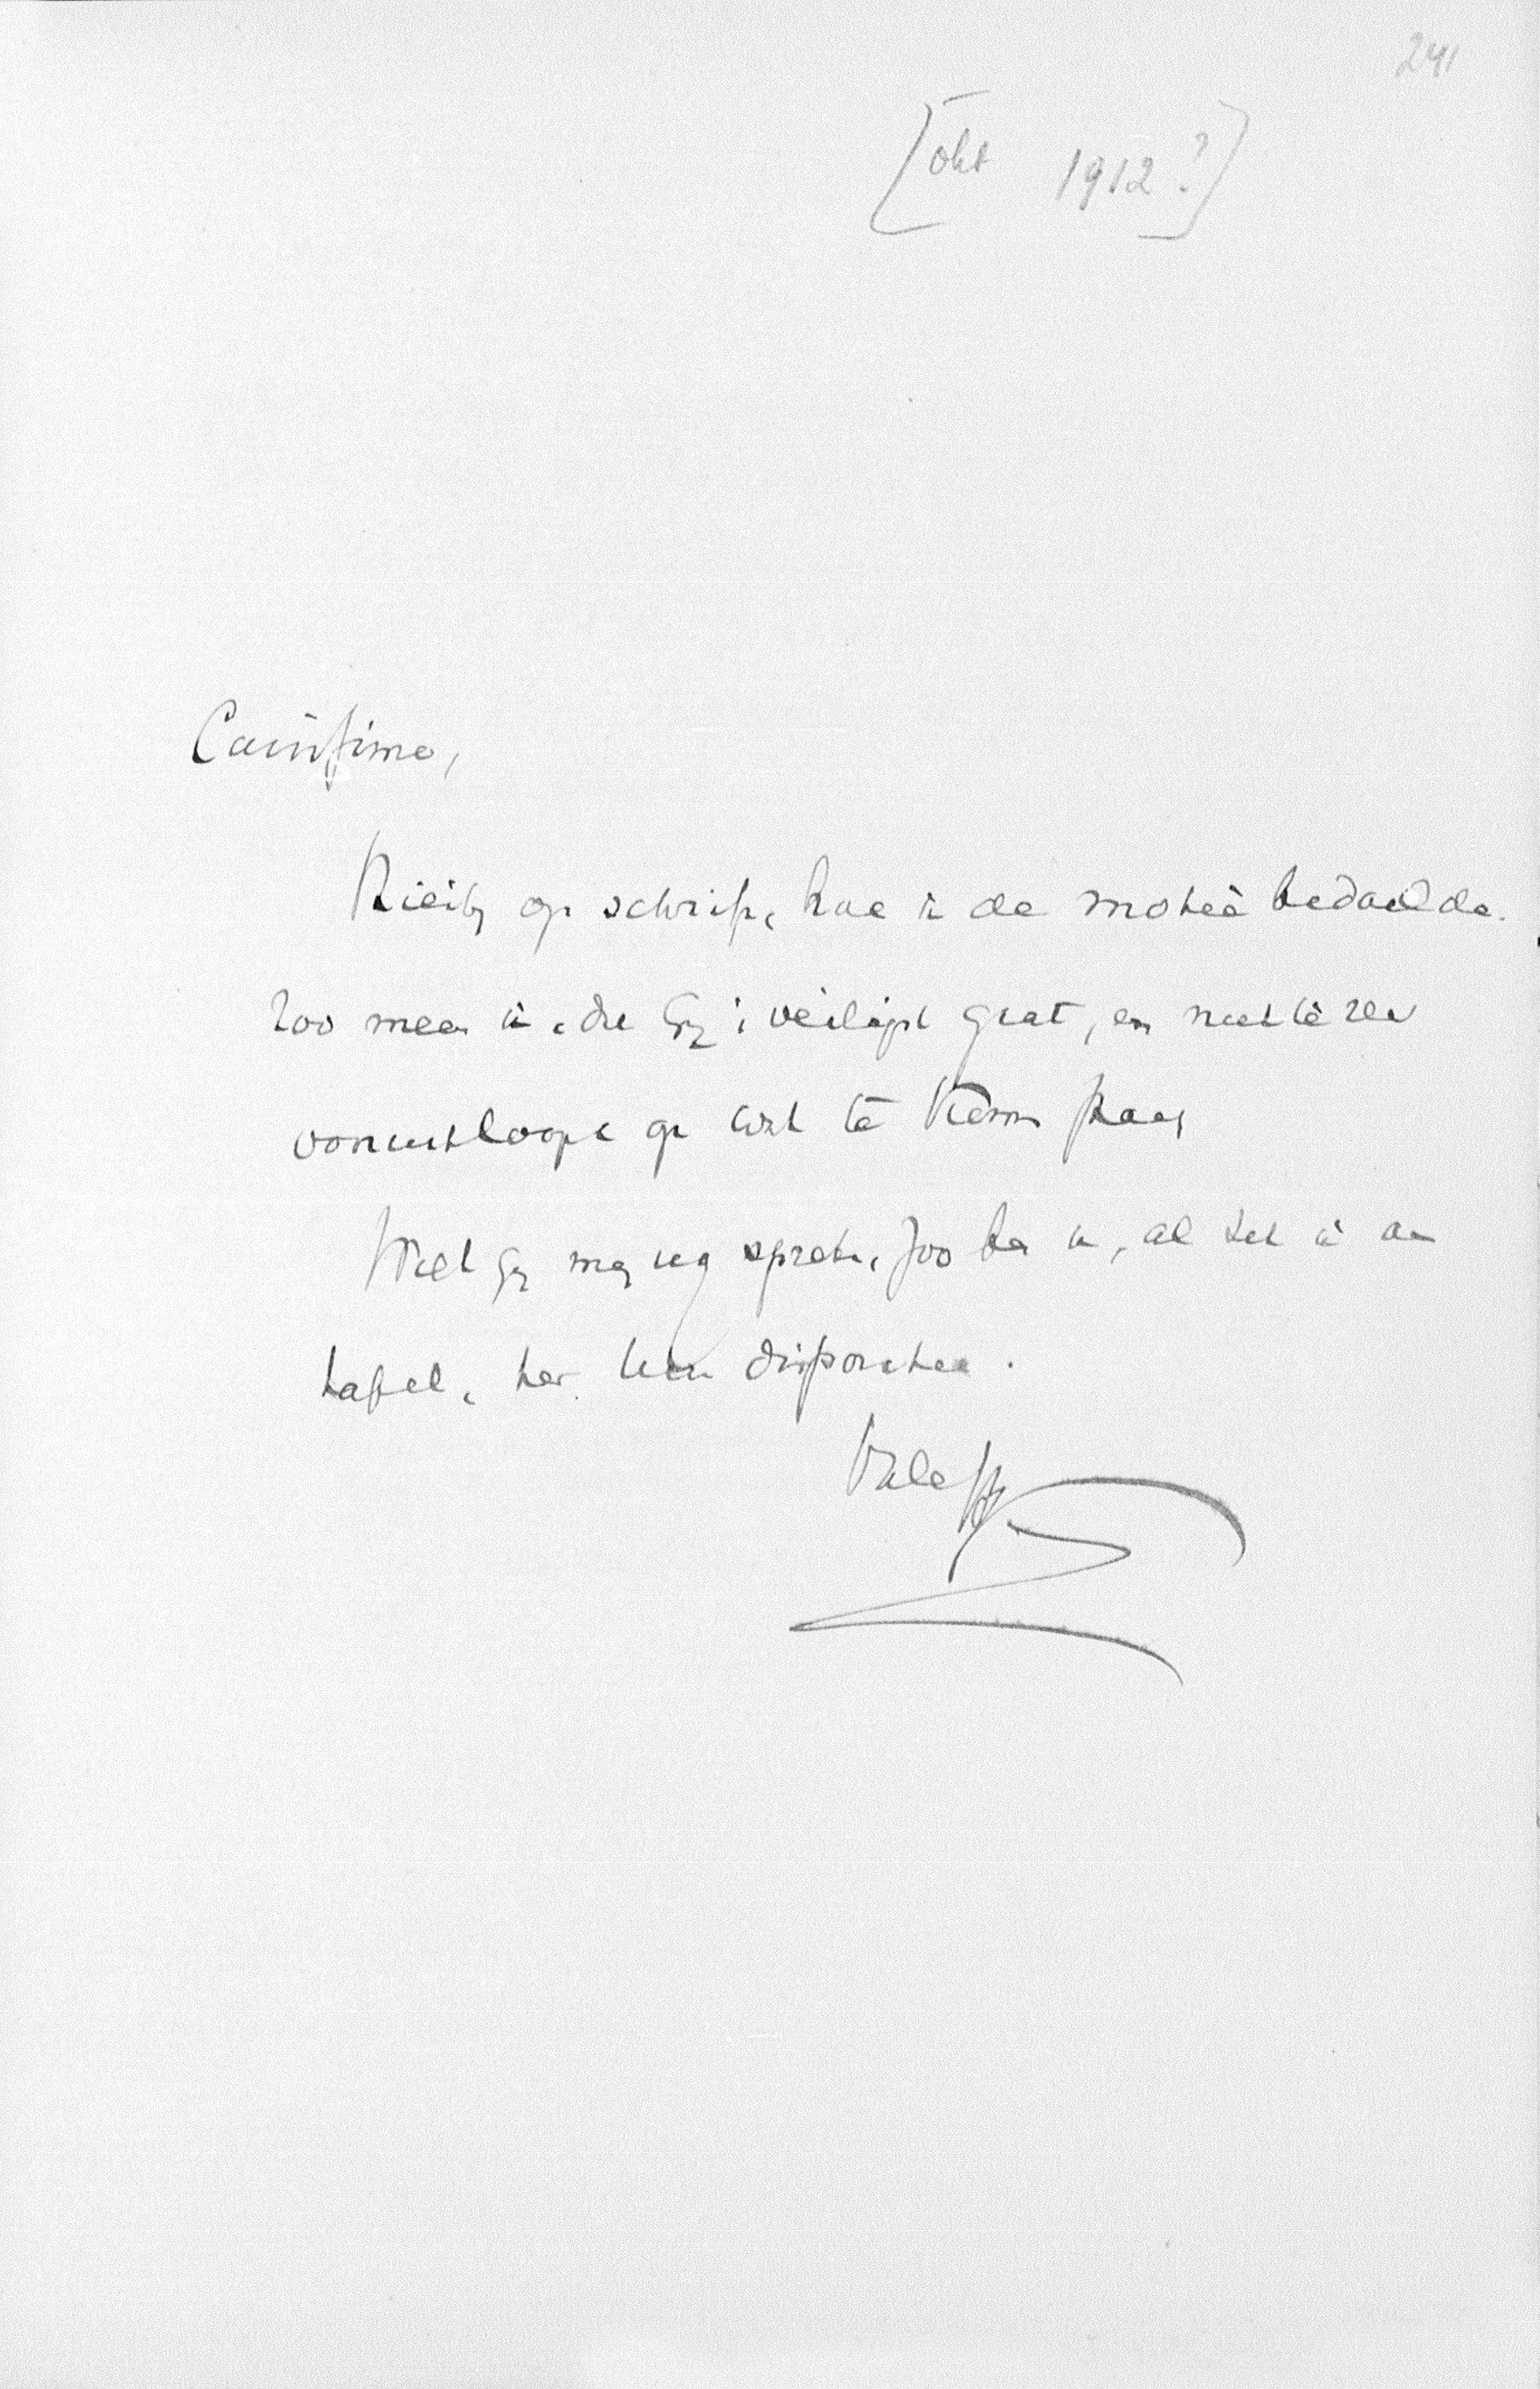 241
[okt 1912?]
Carissime,
Hierbij op schrift, hoe ik de motie bedoelde.
Zoo meen ik, dat Gij veilig gaat, en niet te zeer
vooruitloopt op wat te komen staat
Wilt gij mij nog spreken, Zoo ben ik, al zit ik aan
tafel, ter Uwer dispositie.
Vale